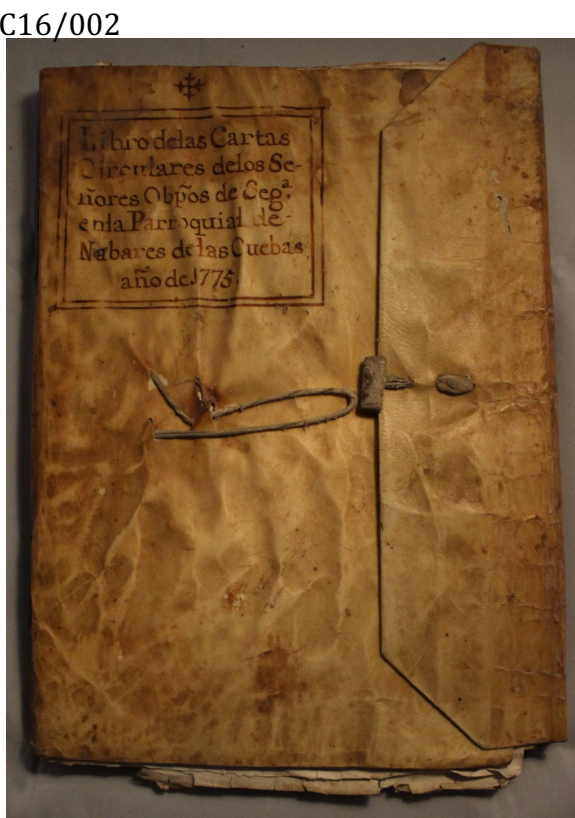 C16/002
Libro de las Cartas
Circulares de los Se-
ñores Obp̃os de Seg.ª
en la Parroquial de-
Nabares de las Cuebas
año de 1775.